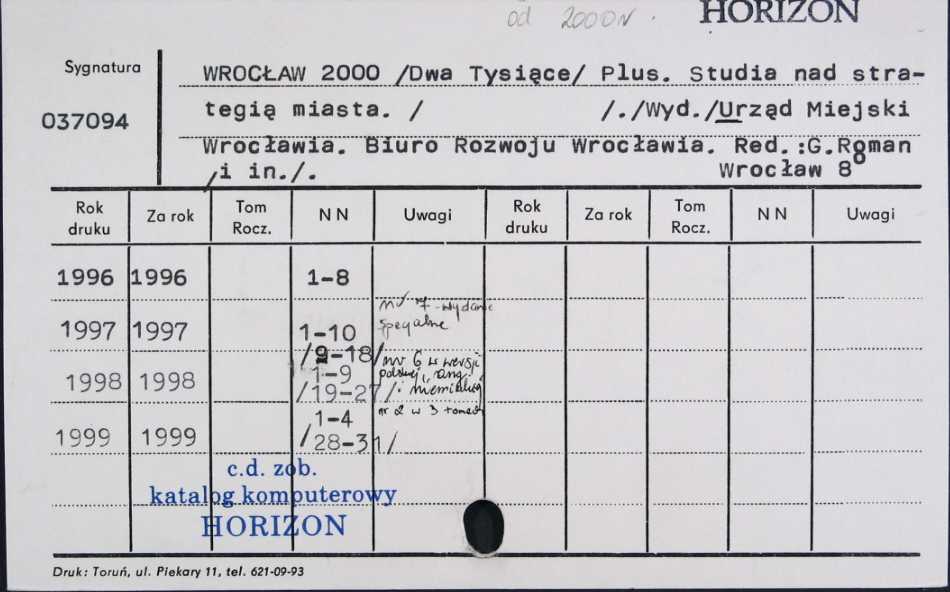 od 2000N.
HORIZON
Sygnatura
037094
WROCŁAW 2000 /Dwa Tysiące/ Plus. Studia nad stra-
tegią miasta. / /./Wyd./Urząd Miejski
Wrocławia. Biuro Rozwoju Wrocławia. Red.:G.Roman
/i in./. Wrocław 8°
Rok druku Za rok Tom Rocz. NN Uwagi Rok druku Za rok Tom Rocz. NN Uwagi
1996 1996 1-8
nr 7 - wydanie
specjalne
1997 1997 1-10
/9-18/
nr 6 w wersji
polskiej, ang.
i niemieckiej
1998 1998 1-9
/19-27/
nr 2 w 3 tomach
1999 1999 1-4
/28-31/
c.d. zob.
katalog komputerowy
HORIZON
Druk: Toruń, ul. Piekary 11, tel. 621-09-93